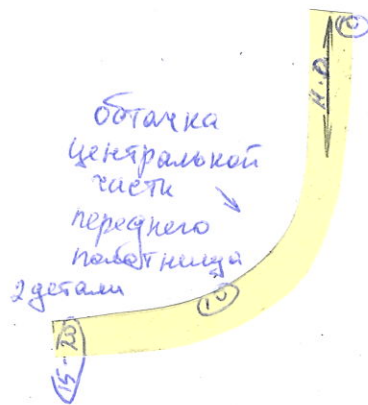 10
Н.О
обтачка
центральной
части
переднего
полотнища
2 детали
10
15-20